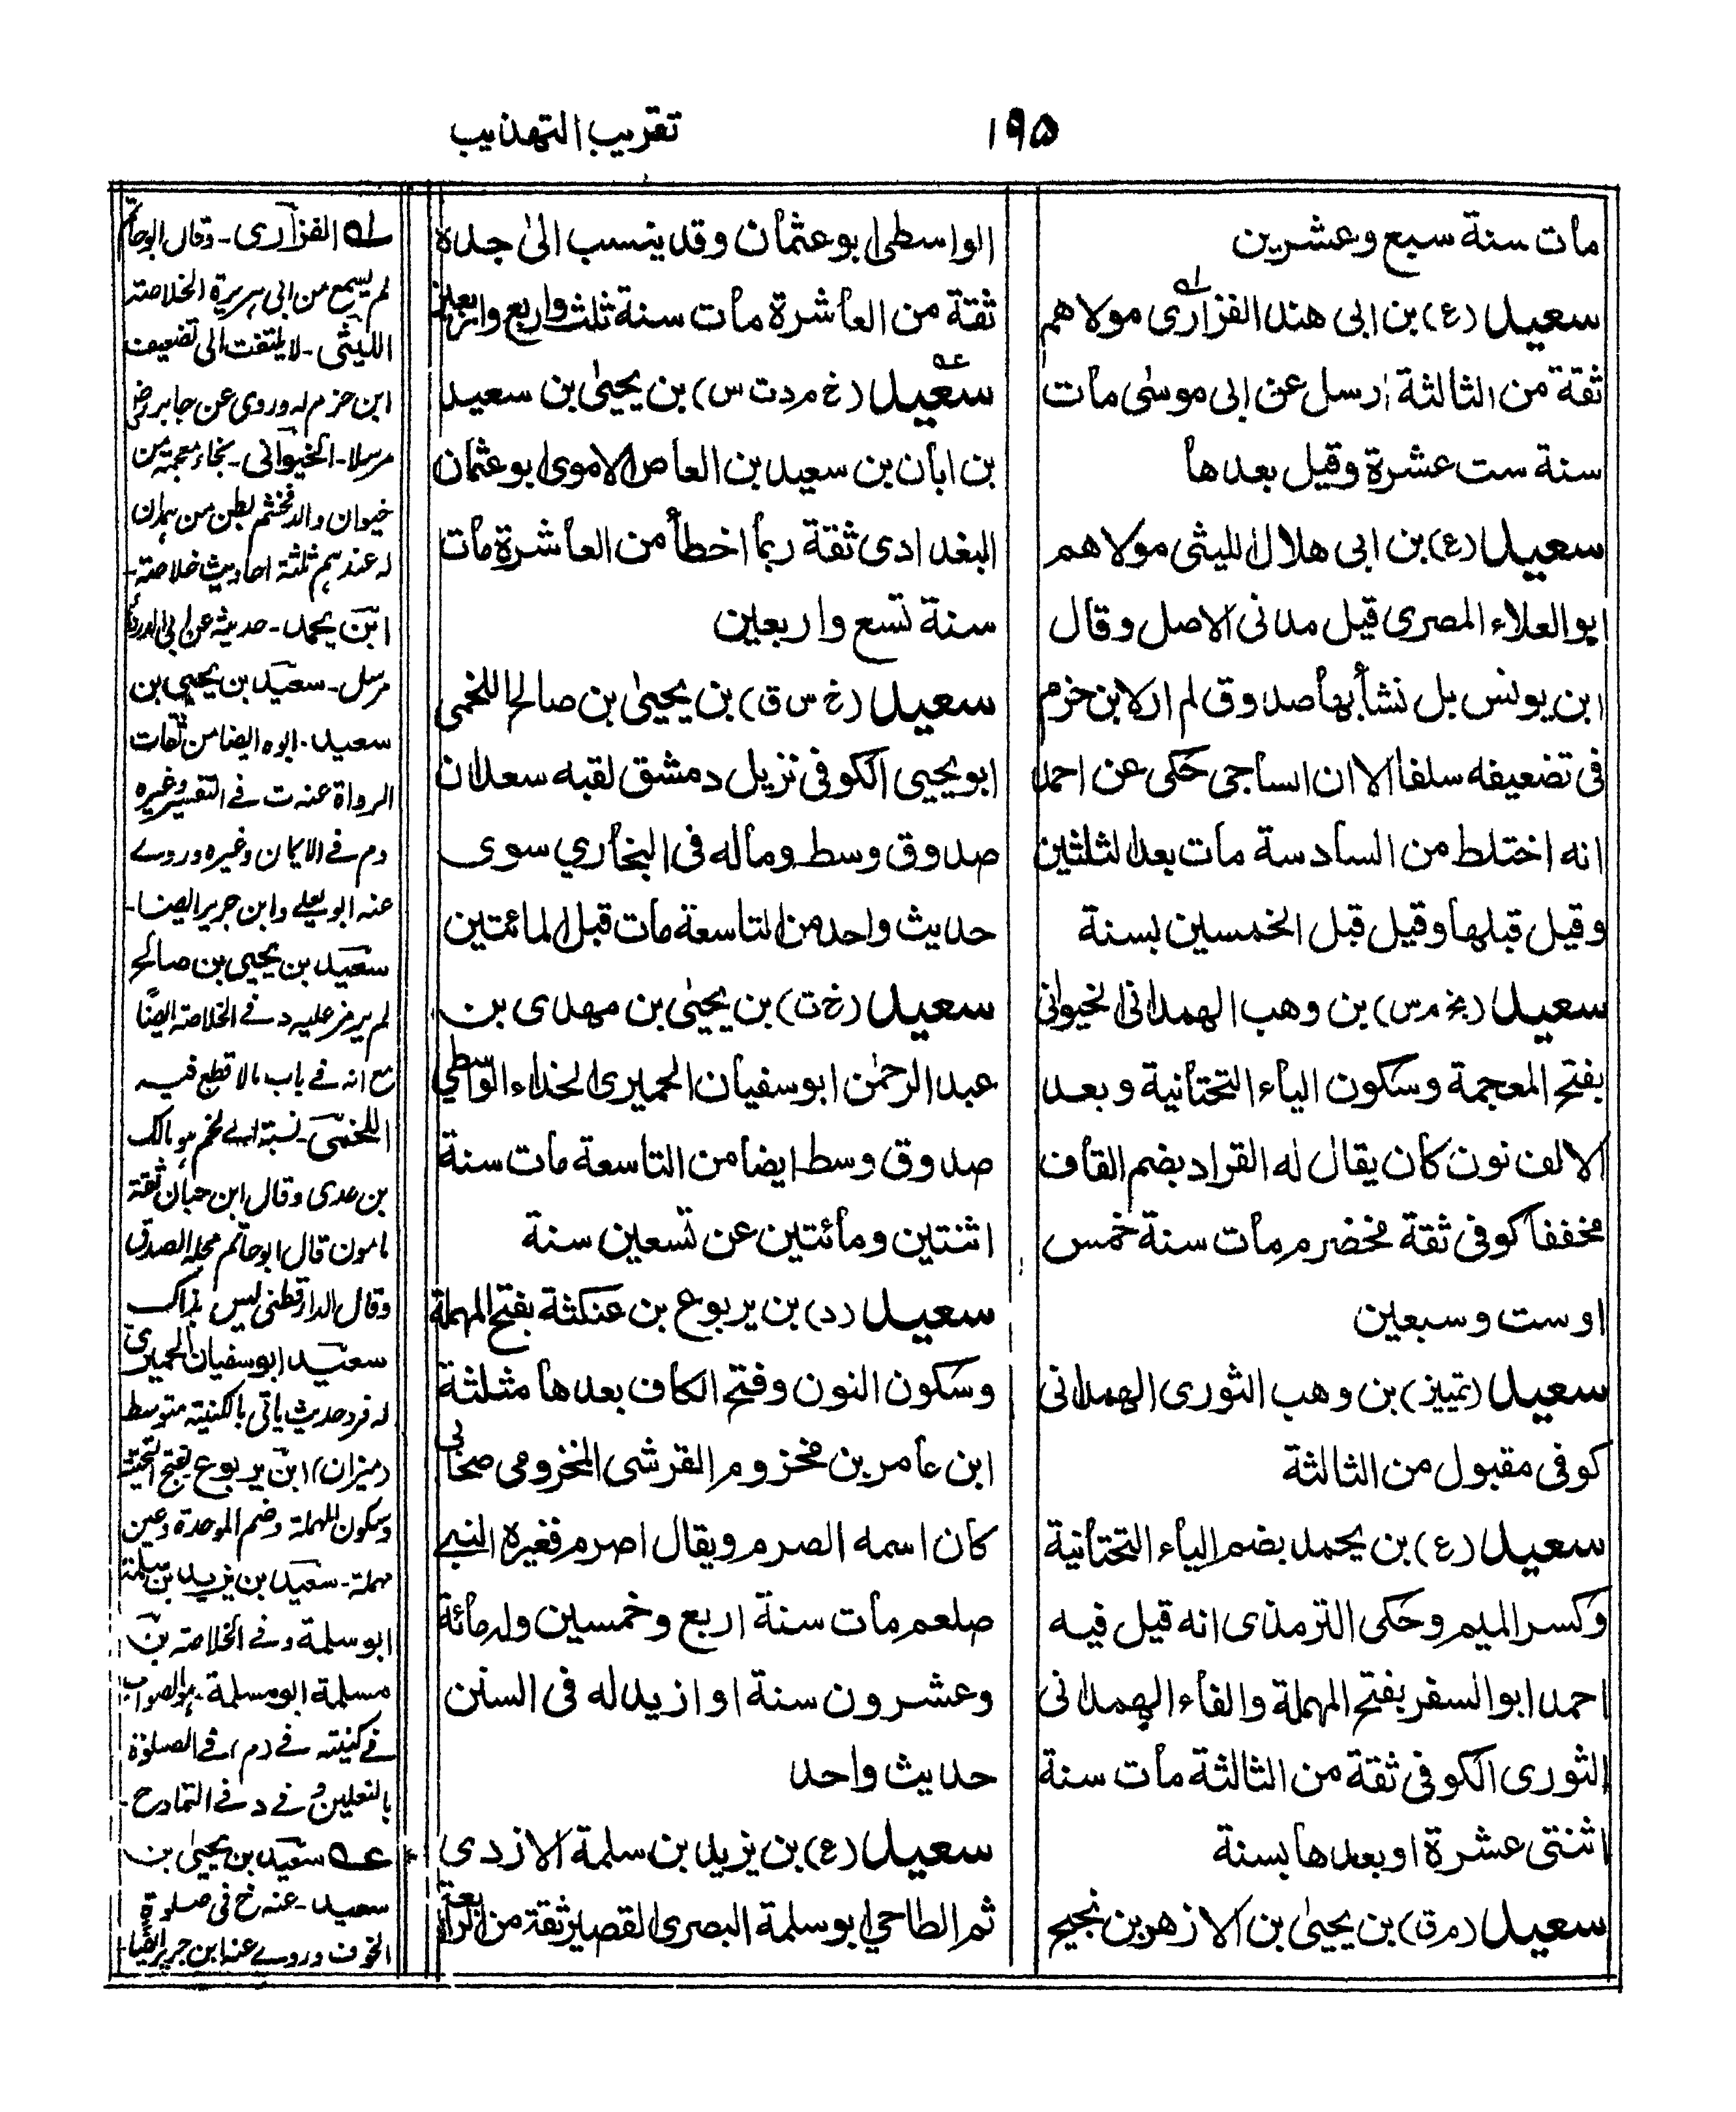 ١٩٥
تقريب التهذيب
مات سنة سبع وعشرين
سعيد (ع) بن ابى هند الفزارى مولاهم
ثقة من الثالثة ارسل عن ابى موسى مات
سنة ست عشرة وقيل بعدها
سعيد (ع) بن ابى هلال الليثى مولاهم
ابو العلاء المصرى قيل مدنى الاصل وقال
ابن يونس بل نشأ بها صدوق لم ار لابن حزم
فى تضعيفه سلفا الا ان الساجى حكى عن احمد
انه اختلط من السادسة مات بعد الثلثين
وقيل قبلها وقيل قبل الخمسين بسنة
سعيد (بخ م س) بن وهب الهمدانى الخيوانى
بفتح المعجمة وسكون الياء التحتانية وبعد
الالف نون كان يقال له القراد بضم القاف
مخففا كوفى ثقة مخضرم مات سنة خمس
او ست وسبعين
سعيد (تمييز) بن وهب الثورى الهمدانى
كوفى مقبول من الثالثة
سعيد (ع) بن يحمد بضم الياء التحتانية
وكسر الميم وحكى الترمذى انه قيل فيه
احمد ابو السفر بفتح المهملة والفاء الهمدانى
الثورى الكوفى ثقة من الثالثة مات سنة
اثنتى عشرة او بعدها بسنة
سعيد (م ق) بن يحيىٰ بن الازهر بن نجيح
الواسطى ابو عثمان وقد ينسب الىٰ جده
ثقة من العاشرة مات سنة ثلث واربع واربعين
سعيد (خ م د ت س) بن يحيىٰ بن سعيد
بن ابان بن سعيد بن العاص الاموى ابو عثمان
البغدادى ثقة ربما اخطأ من العاشرة مات
سنة تسع واربعين
سعيد (خ س ق) بن يحيىٰ بن صالح اللخمى
ابو يحيى الكوفى نزيل دمشق لقبه سعدان
صدوق وسط وماله فى البخاري سوى
حديث واحد من التاسعة مات قبل المائتين
سعيد (خ ت) بن يحيىٰ بن مهدى بن
عبد الرحمٰن ابو سفيان الحميرى الحذاء الواسطي
صدوق وسط ايضا من التاسعة مات سنة
اثنتين ومائتين عن تسعين سنة
سعيد (د) بن يربوع بن عنكثة بفتح المهملة
وسكون النون وفتح الكاف بعدها مثلثة
ابن عامر بن مخزوم القرشى المخزومى صحابي
كان اسمه الصرم ويقال اصرم فغيره النبي
صلعم مات سنة اربع وخمسين وله مائة
وعشرون سنة او ازيد له فى السنن
حديث واحد
سعيد (ع) بن يزيد بن سلمة الازدى
ثم الطاحي ابو سلمة البصرى القصير ثقة من الرابعة
له الفزارى - وقال ابو حاتم
لم يسمع من ابى هريرة الخلاصة
الليثى - لا يلتفت الى تضعيف
ابن حزم له وروى عن جابر رض
مرسلا - الخيوانى - بخاء معجمة من
خيوان والد بطن من همدان
له عندهم ثلثة احاديث خلاصة -
ابن يحمد - حديثه عن ابى الدرداء
مرسل - سعيد بن يحيى بن
سعيد - ابوه ايضا من ثقات
الرواة عنه ت في التفسير وغيره
وم في الايمان وغيره وروے
عنه ابو يعلے وابن جرير ايضا -
سعيد بن يحيى بن صالح
لم يرمز عليه د في الخلاصة ايضًا
مع انه في باب مالا قطع فيه
اللخمى - نسبة الے لخم هو مالك
بن عدى وقال ابن حبان ثقة
مامون قال ابو حاتم محله الصدق
وقال الدارقطنى ليس بذاك
سعيد ابو سفيان الحميرى
له فرد حديث ياتى بالكنية متوسط
(ميزان) ابن يربوع بفتح التحتية
وسكون المهملة وضم الموحدة وعين
مهملة - سعيد بن يزيد بن سلمة
ابو سلمة وفي الخلاصة بن
مسلمة ابو مسلمة - هو الصواب
في كنيته في (م) في الصلوة
بالنعلين في د في التمادح -
عه سعيد بن يحيىٰ بن
سعيد - عنه خ فى صلوة
الخوف وروے عنه ابن جرير ايضا -